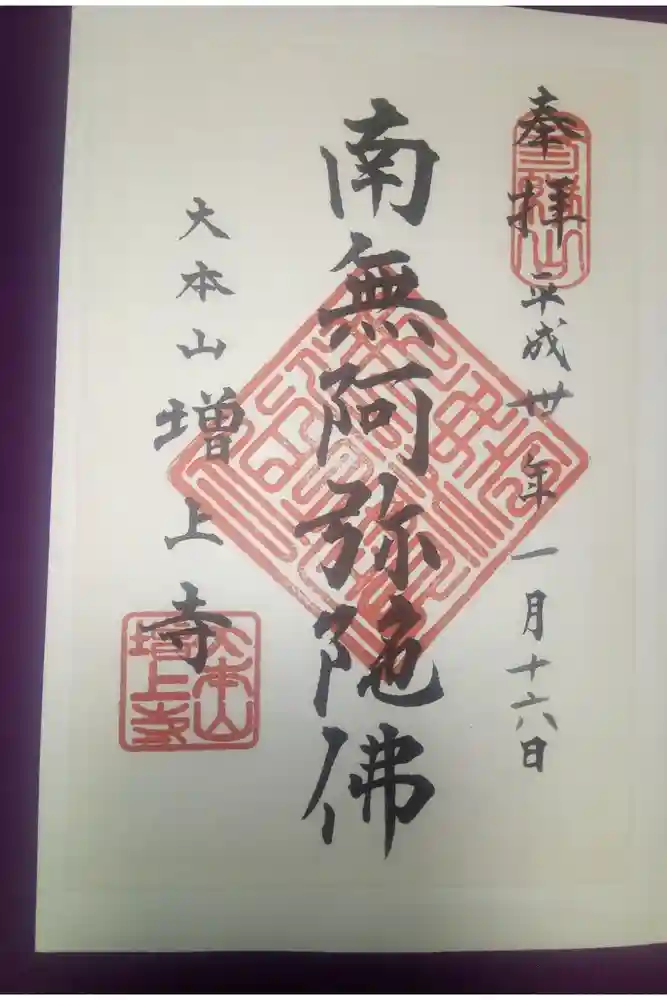 奉拝 平成卅年一月十六日
南無阿弥陀佛
大本山増上寺
大本山
増上寺